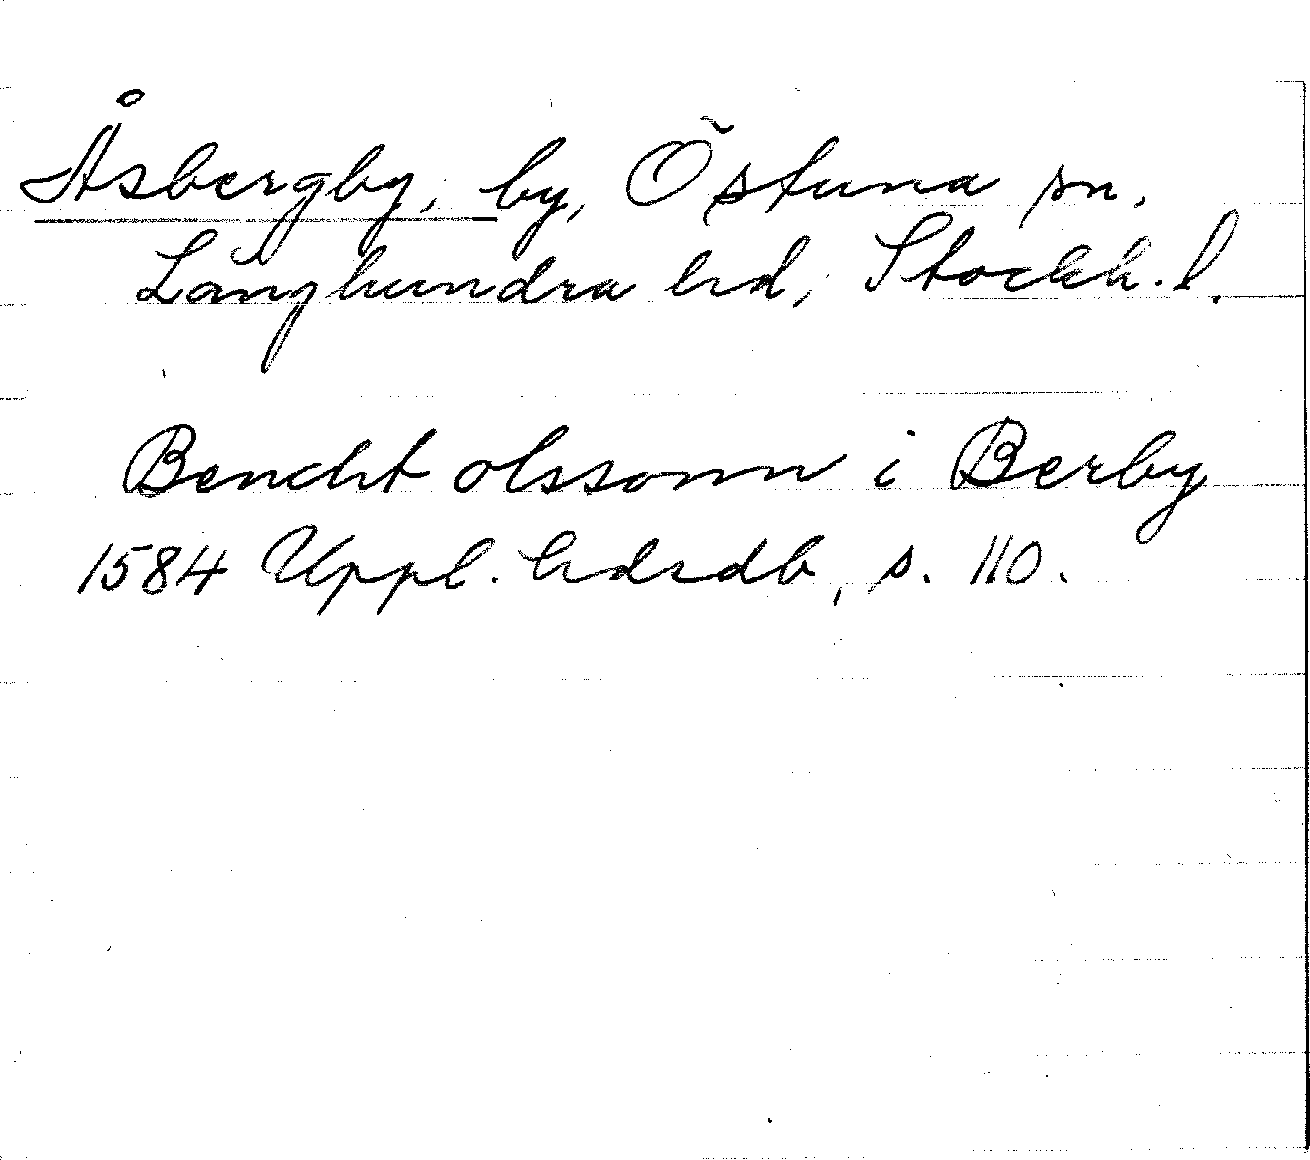 Åsbergby, by, Östuna sn.
Långhundra hd, Stockh. l.
Bencht olssonn i Berby
1584 Uppl. hdrdb, s. 110.